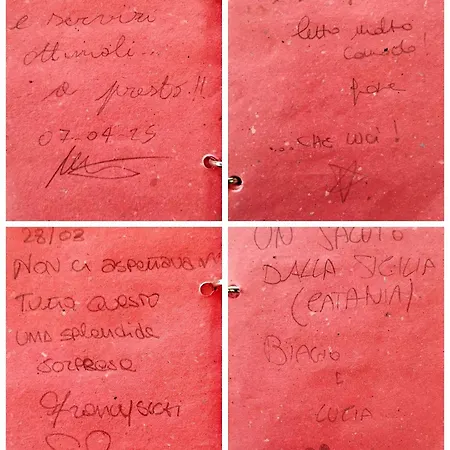 e servizi
ottimali...
a presto!!
07-04-25
letto molto
comodo!
...CHE LUCI!
28/02
NON CI ASPETTAVAM
TUTTO QUESTO
UNA SPLENDIDA
SORPRESA
UN SALUTO
DALLA SICILIA
(CATANIA)
BIAGIO
E
LUCIA